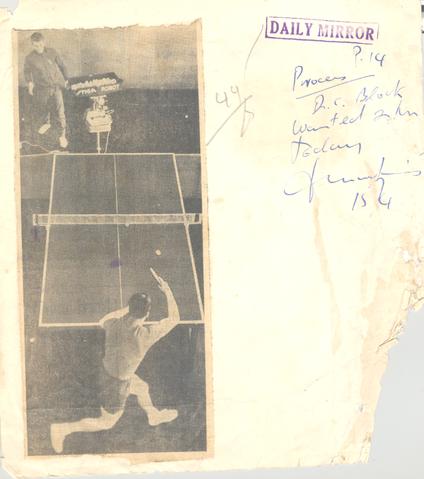 DAILY MIRROR
P. 14
Process
D.C. Block
wanted
today
15/4
44
STIGA ROBOT